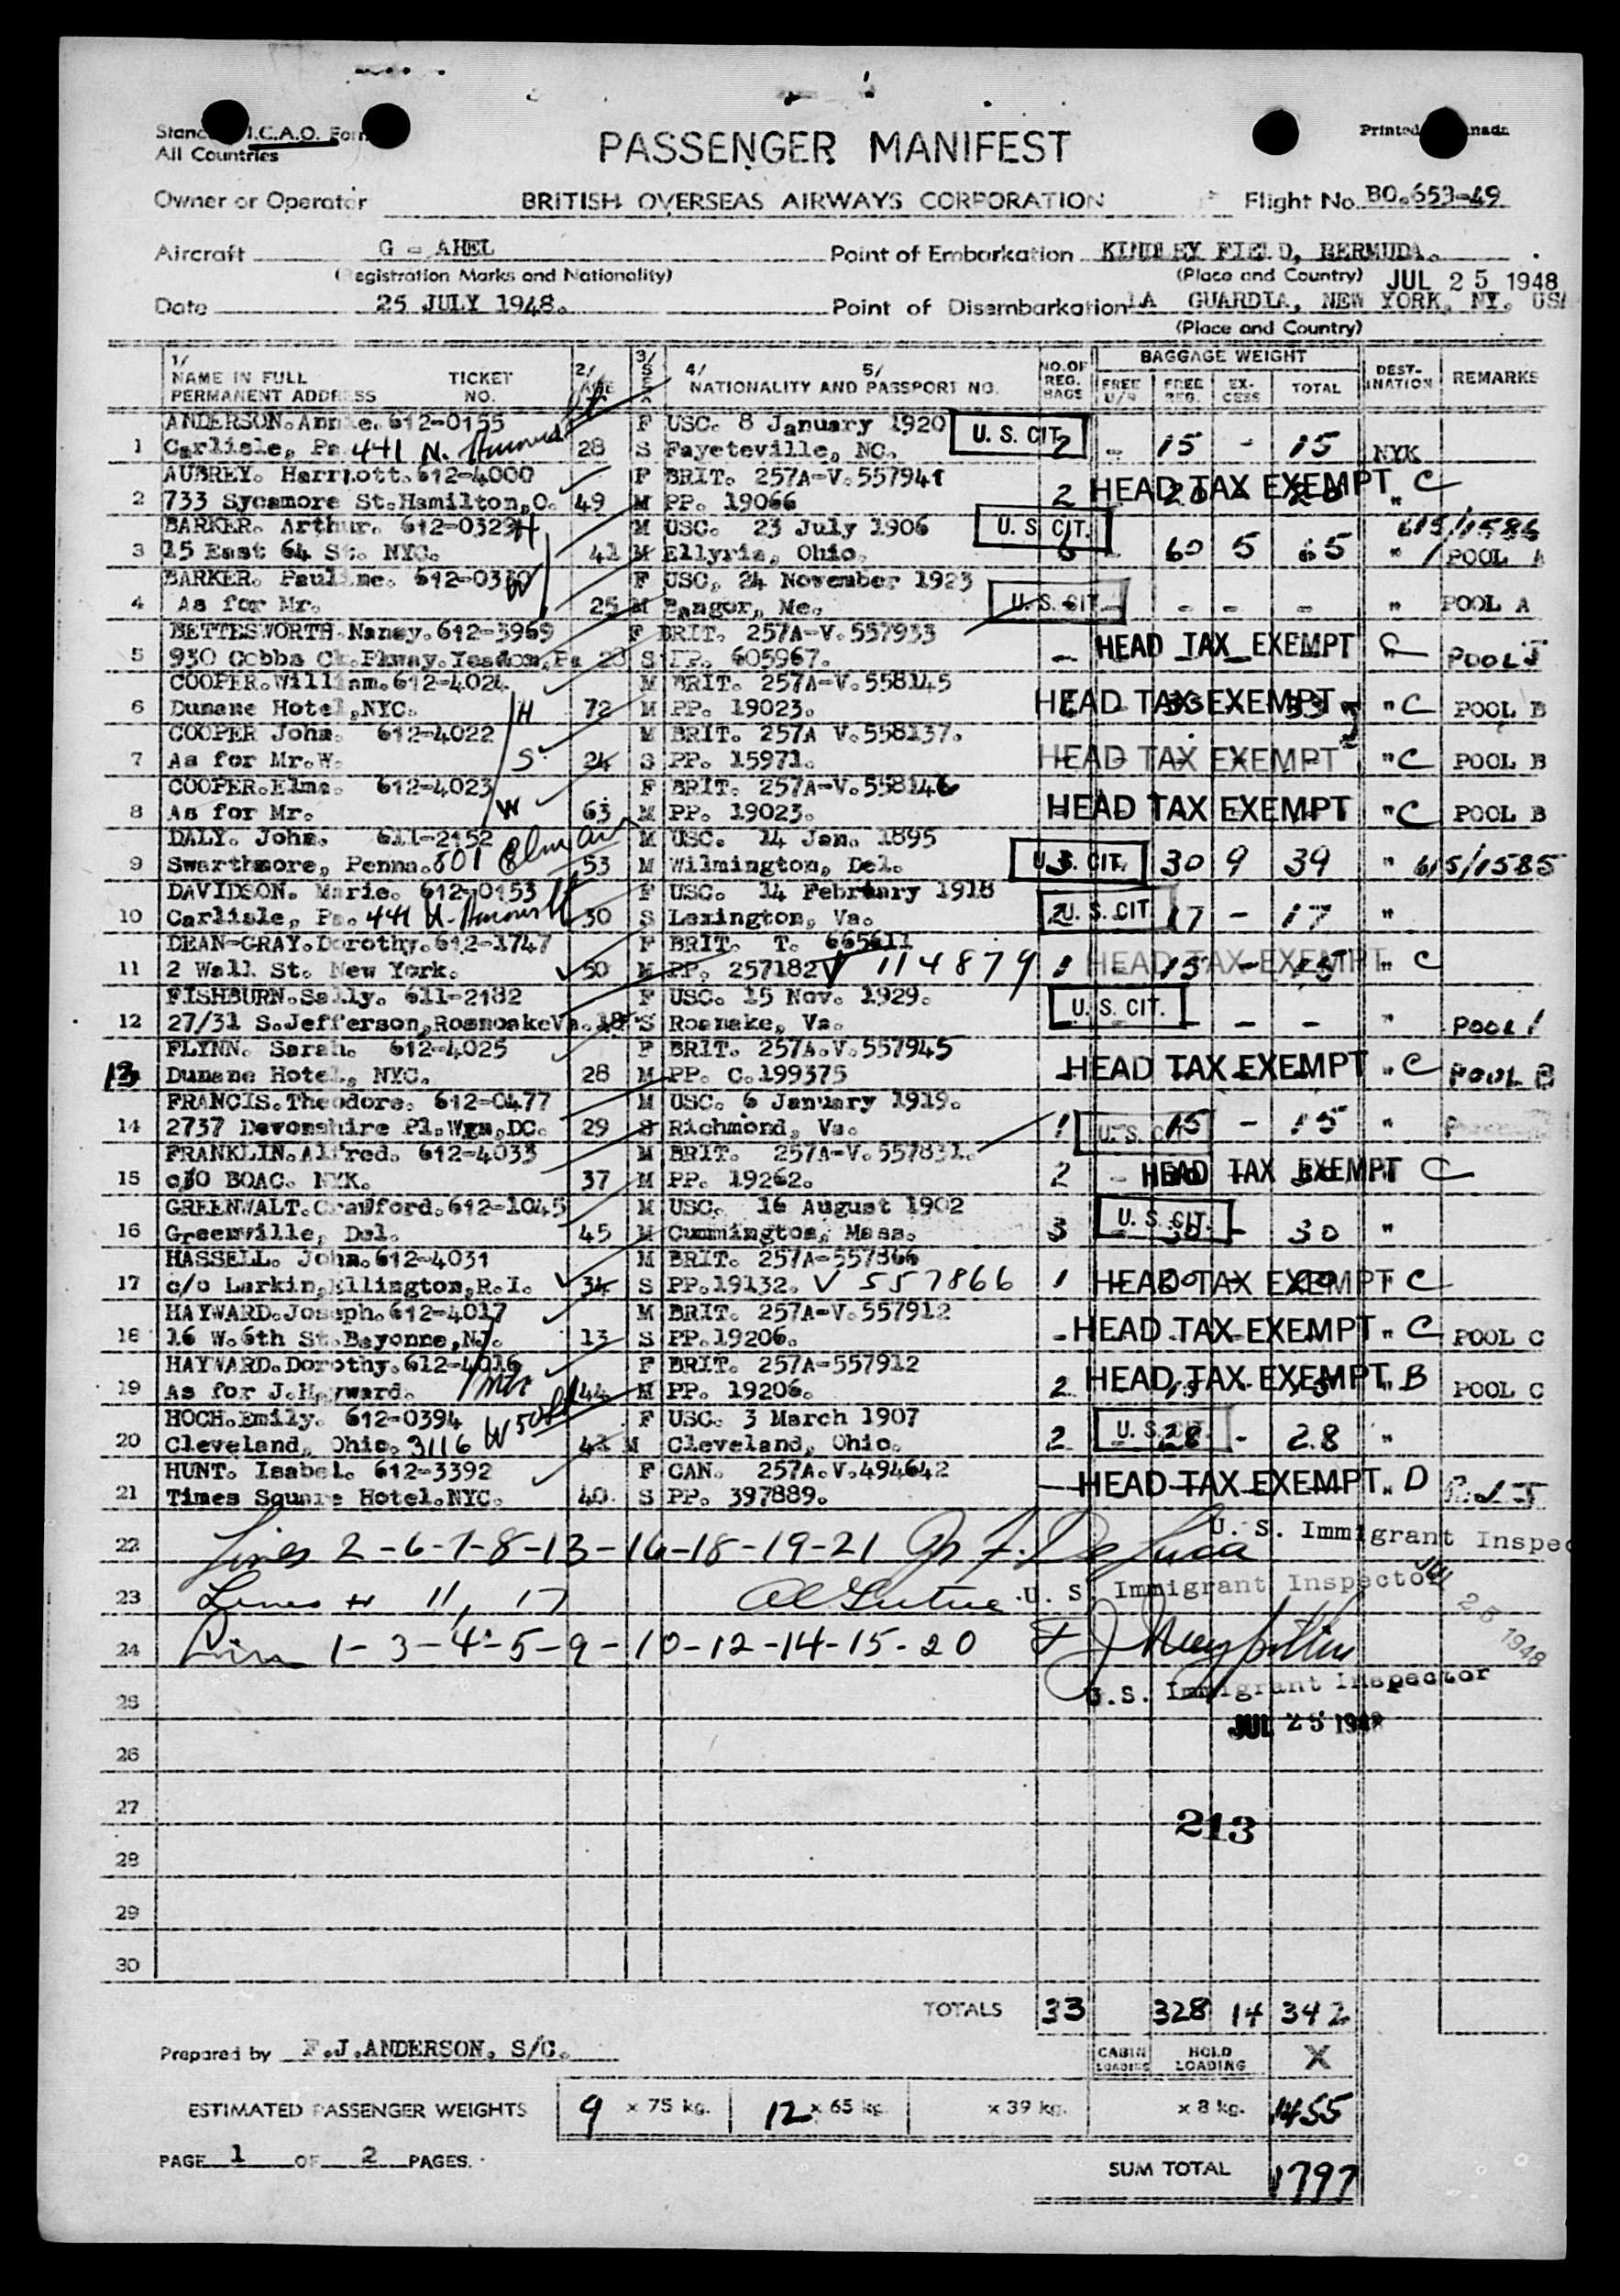 I.C.A.O.
All Countries
PASSENGER MANIFEST
Printed
Owner or Operator BRITISH OVERSEAS AIRWAYS CORPORATION Flight No. BO.653-49
Aircraft G - AHEL Point of Embarkation KINDLEY FIELD, BERMUDA.
(Registration Marks and Nationality) (Place and Country) JUL 25 1948
Date 25 JULY 1948. Point of Disembarkation LA GUARDIA, NEW YORK, NY. USA
(Place and Country)
1/ NAME IN FULL PERMANENT ADDRESS TICKET NO. 2/ AGE 3/ SEX 4/ 5/ NATIONALITY AND PASSPORT NO. NO.OF REG. BAGS BAGGAGE WEIGHT FREE U/W FREE REG. EX-CESS TOTAL DEST-INATION REMARKS
ANDERSON.Annie.612-0155 F USC. 8 January 1920 U. S. CIT.
1 Carlisle, Pa 441 N. 28 S Fayeteville, NC. 2 - 15 - 15 NYK
AUBREY. Harriott.612-4000 F BRIT. 257A-V.557941
2 733 Sycamore St.Hamilton,O. 49 M PP. 19066 2 HEAD TAX EXEMPT " C
BARKER. Arthur. 612-0329 H M USC. 23 July 1906 U. S. CIT. 615/1586
3 15 East 64 St. NYC. 41 M Ellyria, Ohio. 6 - 60 5 65 " POOL A
BARKER. Pauline. 612-0330 W F USC. 24 November 1923
4 As for Mr. 25 M Bangor, Me. U. S. CIT. - - - - " POOL A
BETTESWORTH.Nancy.612-3969 F BRIT. 257A-V.557933
5 930 Cobbs Ck.Pkway.Yeadon,Pa 28 S PP. 605967. - HEAD TAX EXEMPT C POOL J
COOPER.William.612-4024 M BRIT. 257A-V.558145
6 Dunane Hotel,NYC. H 72 M PP. 19023. HEAD TAX EXEMPT " C POOL B
COOPER John. 612-4022 M BRIT. 257A V.558137.
7 As for Mr.W. S. 24 S PP. 15971. HEAD TAX EXEMPT " C POOL B
COOPER.Elma. 612-4023 F BRIT. 257A-V.558146
8 As for Mr. W 63 M PP. 19023. HEAD TAX EXEMPT " C POOL B
DALY. John. 611-2152 M USC. 14 Jan. 1895
9 Swarthmore, Penna. 601 Elm Av 53 M Wilmington, Del. 3 U. S. CIT. 30 9 39 " 615/1585
DAVIDSON. Marie. 612-0153 F USC. 14 February 1918
10 Carlisle, Pa. 441 N. 30 S Lexington, Va. 2 U. S. CIT. 17 - 17 "
DEAN-GRAY.Dorothy.612-1747 F BRIT. T. 665611
11 2 Wall St. New York. 50 M PP. 257182 V 114879 1 HEAD TAX EXEMPT 15 - 15 " C
FISHBURN.Sally. 611-2182 F USC. 15 Nov. 1929.
12 27/31 S.Jefferson,RoanoakeVa. 18 S Roanake, Va. U. S. CIT. - - - " POOL 1
FLYNN. Sarah. 612-4025 F BRIT. 257A.V.557945
13 Dunane Hotel, NYC. 28 M PP. C.199375 HEAD TAX EXEMPT " C POOL B
FRANCIS.Theodore. 612-0477 M USC. 6 January 1919.
14 2737 Devonshire Pl.Wgn,DC. 29 S Richmond, Va. 1 U. S. CIT. 15 - 15 "
FRANKLIN.Alfred. 612-4033 M BRIT. 257A-V.557831.
15 c/o BOAC. NYK. 37 M PP. 19262. 2 - HEAD TAX EXEMPT C
GREENWALT.Crawford.612-1045 M USC. 16 August 1902
16 Greenville, Del. 45 M Cummington, Mass. 3 U. S. CIT. 30 - 30 "
HASSELL. John.612-4031 M BRIT. 257A-557866
17 c/o Larkin,Ellington,R.I. 34 S PP.19132. V 557866 1 HEAD TAX EXEMPT C
HAYWARD.Joseph.612-4017 M BRIT. 257A-V.557912
18 16 W.6th St.Bayonne,NJ. 13 S PP.19206. - HEAD TAX EXEMPT " C POOL C
HAYWARD.Dorothy.612-4016 F BRIT. 257A-557912
19 As for J.Hayward. 44 M PP. 19206. 2 HEAD TAX EXEMPT " B POOL C
HOCH.Emily. 612-0394 F USC. 3 March 1907
20 Cleveland, Ohio. 3116 W 50 41 M Cleveland, Ohio. 2 U. S. CIT. 28 - 28 "
HUNT. Isabel. 612-3392 F CAN. 257A.V.494642
21 Times Square Hotel.NYC. 40 S PP. 397889. HEAD TAX EXEMPT " D
22 Lines 2-6-7-8-13-16-18-19-21 U. S. Immigrant Inspec
23 Lines # 11, 17 U. S. Immigrant Inspector JUL 25 1948
24 Lines 1-3-4-5-9-10-12-14-15-20
25 U.S. Immigrant Inspector
JUL 25 1948
26
27 213
28
29
30
TOTALS 33 328 14 342
Prepared by F.J.ANDERSON. S/C. CABIN LOADING HOLD LOADING X
ESTIMATED PASSENGER WEIGHTS 9 x 75 kg. 12 x 65 kg. x 39 kg. x 8 kg. 1455
PAGE 1 OF 2 PAGES.
SUM TOTAL 1797